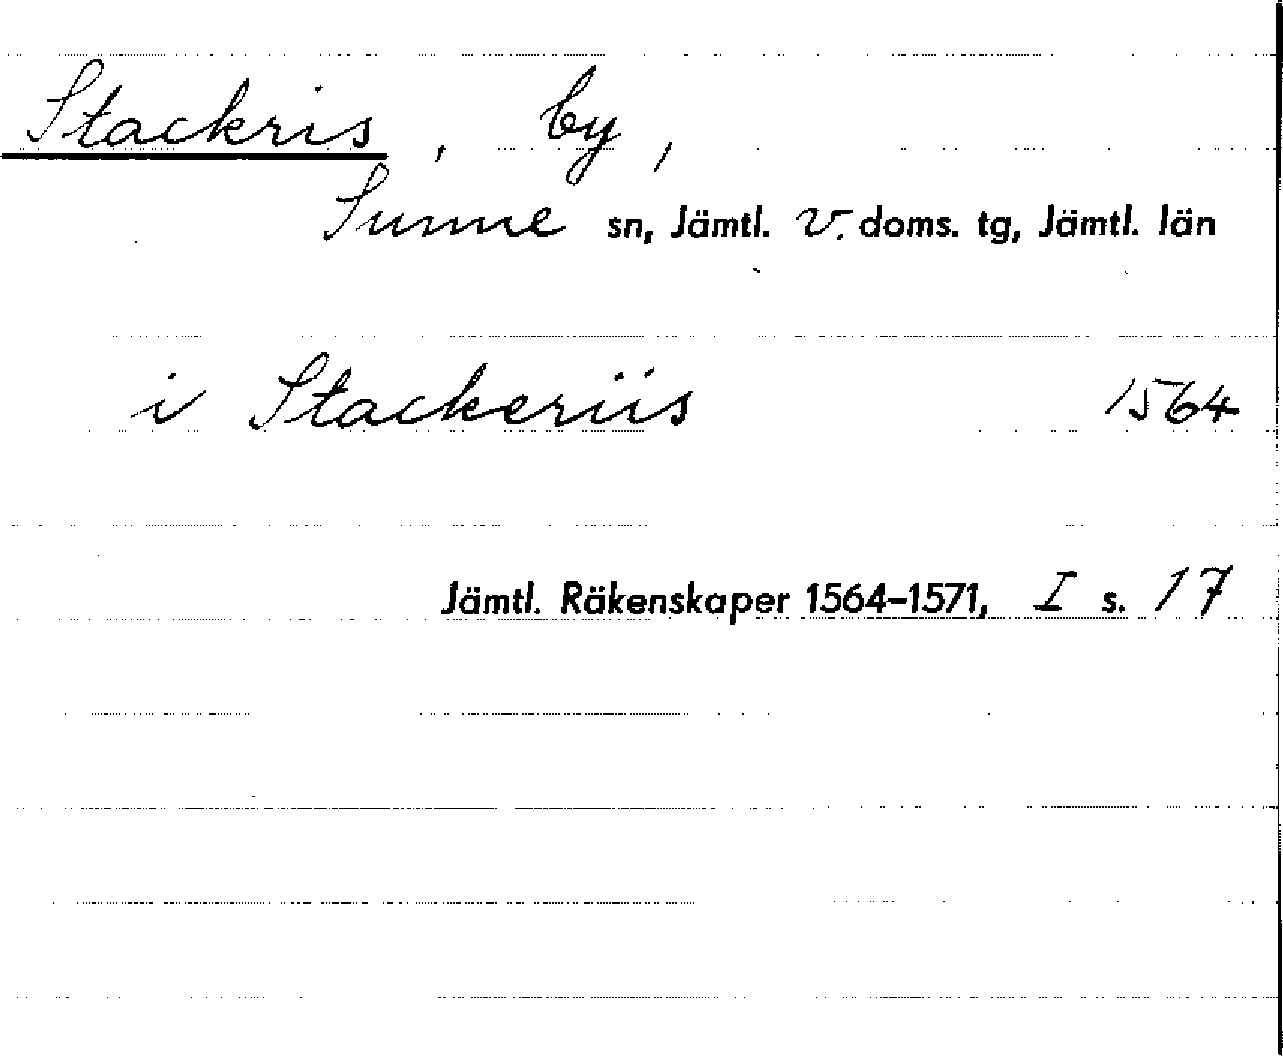 Stackris, by,
Sunne sn, Jämtl. v. doms. tg, Jämtl. län
i Stackeriis 1564
Jämtl. Räkenskaper 1564-1571, I s. 17